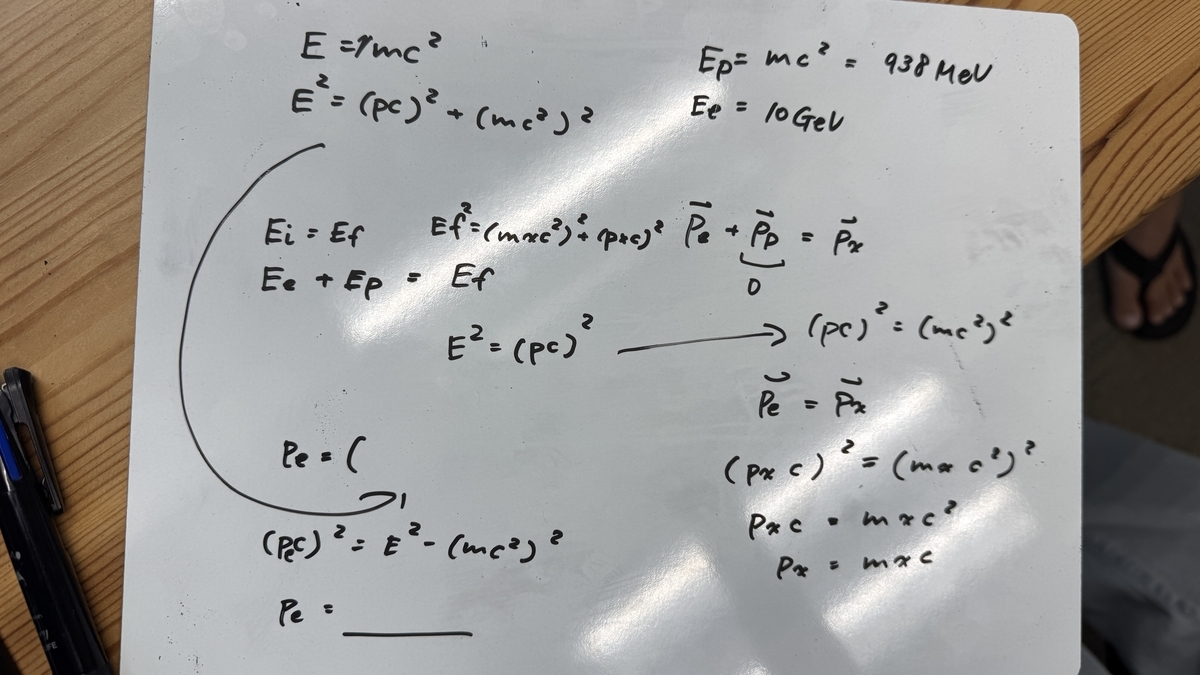 E = γmc²
E² = (pc)² + (mc²)²
Ep = mc² = 938 MeV
Ee = 10 GeV
Ei = Ef
Ef² = (mxc²)² + (pxc)²
P⃗e + P⃗p = P⃗x
0
Ee + Ep = Ef
E² = (pc)² → (pc)² = (mc²)²
P⃗e = P⃗x
Pe = (
(pxc)² = (mxc²)²
pxc = mxc²
px = mxc
(Pec)² = E² - (mc²)²
Pe =